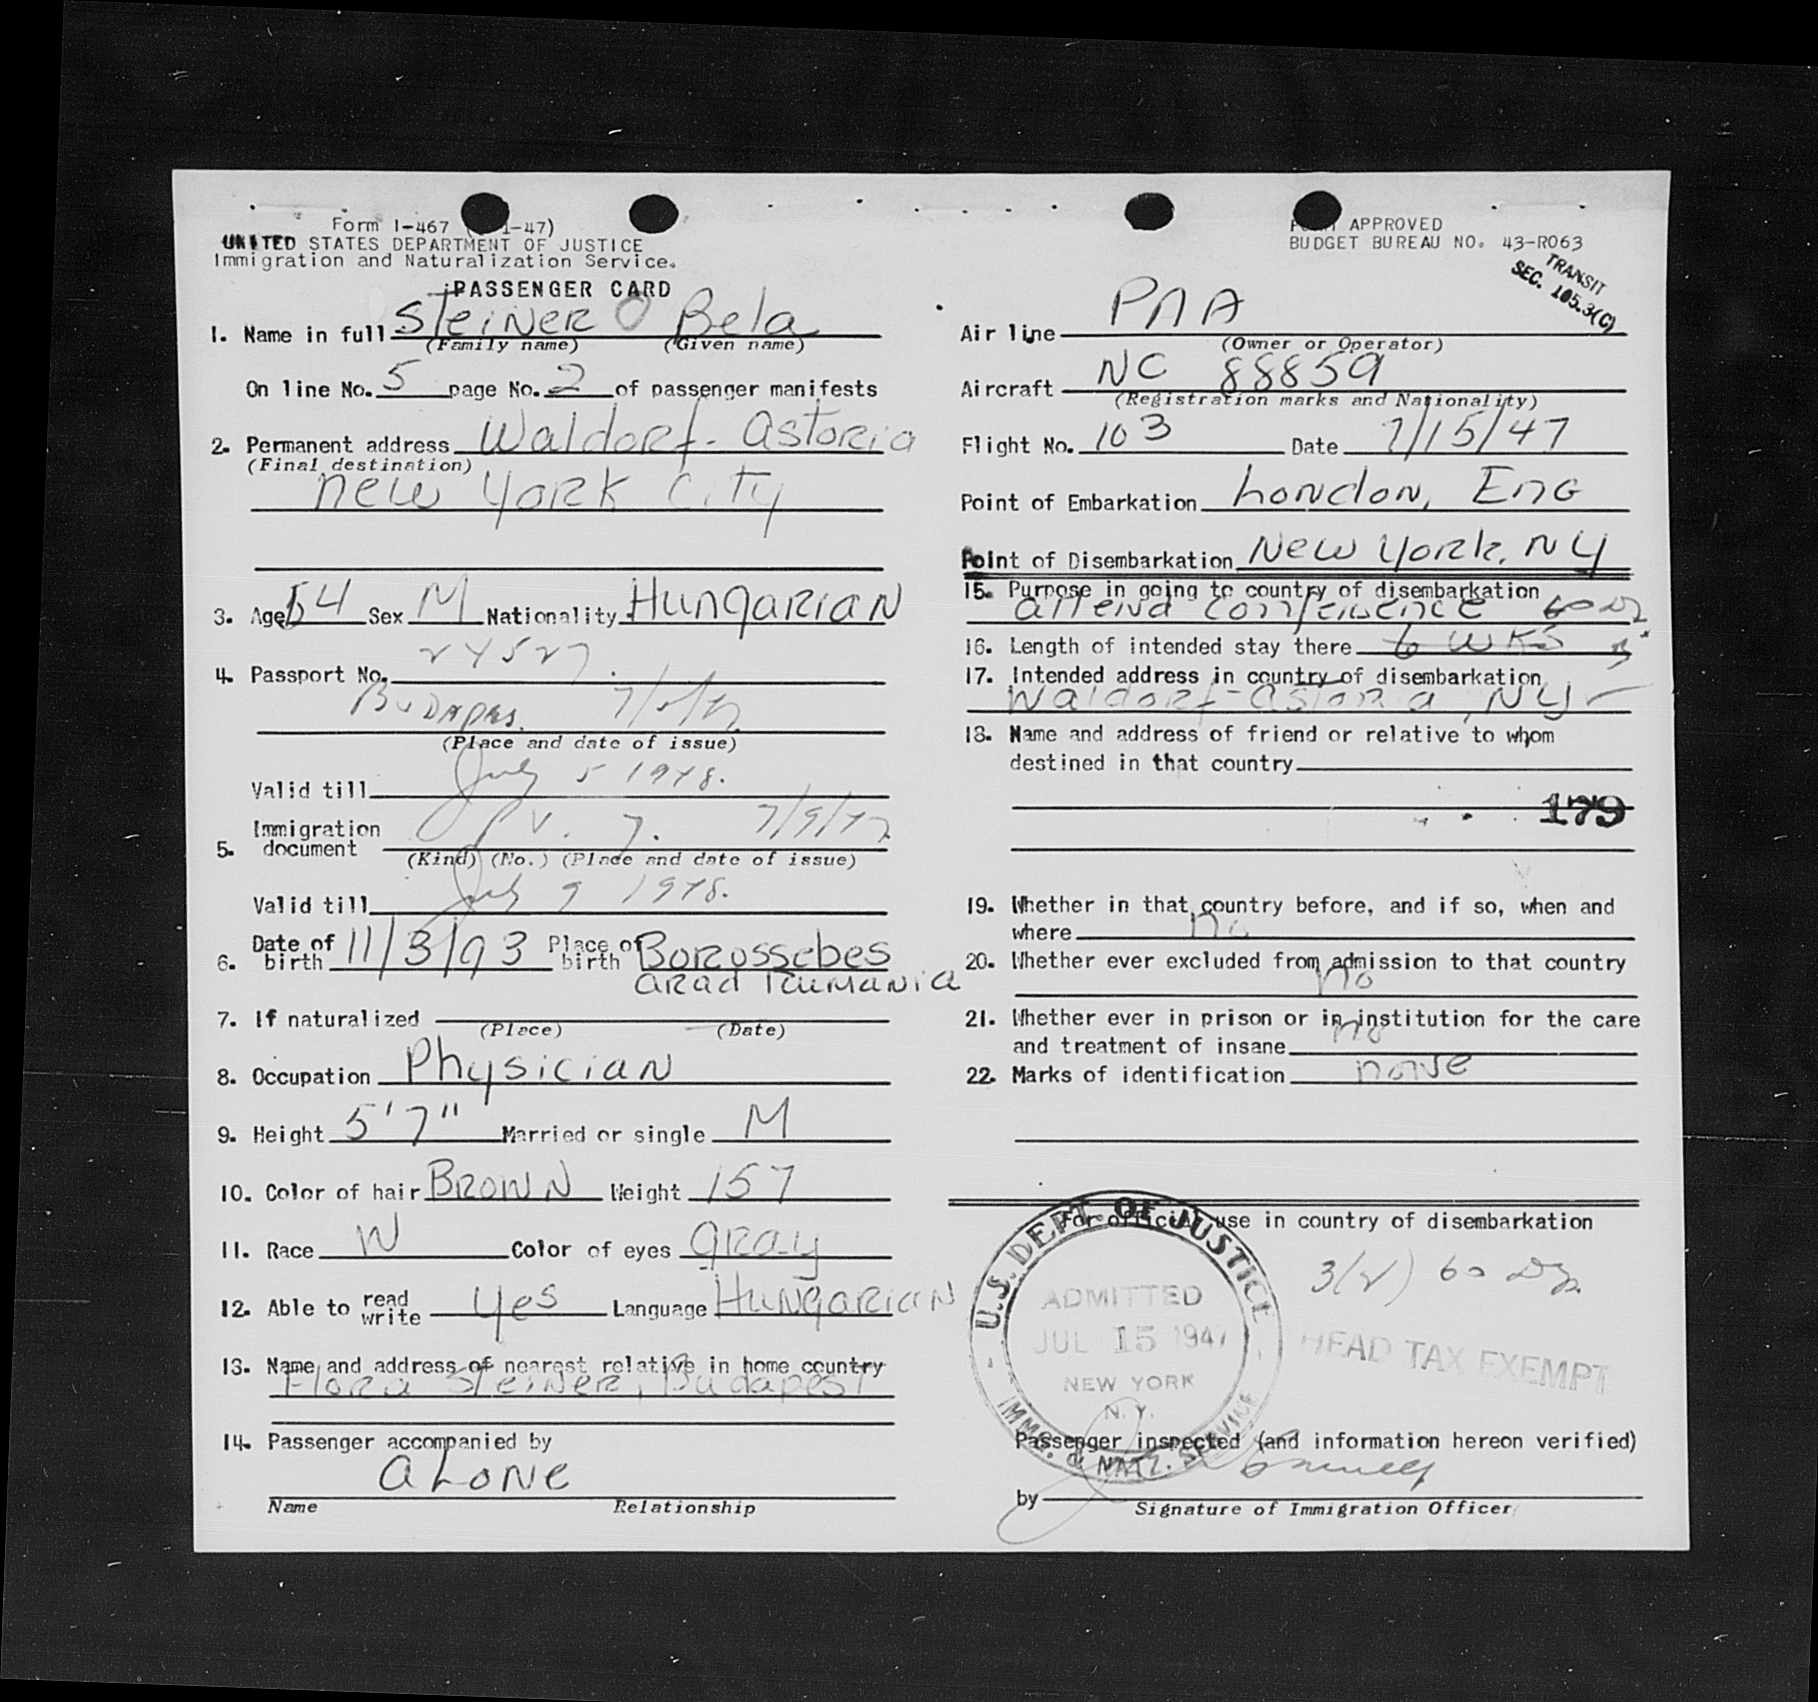 Form I-467 ( 1-47)
UNITED STATES DEPARTMENT OF JUSTICE
Immigration and Naturalization Service.
PASSENGER CARD
1. Name in full Steiner Bela
(Family name) (Given name)
On line No. 5 page No. 2 of passenger manifests
2. Permanent address Waldorf-Astoria
(Final destination)
New York City
3. Age 54 Sex M Nationality Hungarian
4. Passport No. 24527
Budapes.
(Place and date of issue)
Valid till July 5 1948.
5. Immigration document 7/9/47
(Kind) (No.) (Place and date of issue)
Valid till July 9 1948.
6. Date of birth 11/3/93 Place of birth Borossebes
Arad Rumania
7. If naturalized
(Place) (Date)
8. Occupation Physician
9. Height 5'7" Married or single M
10. Color of hair Brown Weight 157
11. Race W Color of eyes Gray
12. Able to read write Yes Language Hungarian
13. Name and address of nearest relative in home country
Flora Steiner, Budapest
14. Passenger accompanied by
Alone
Name Relationship
APPROVED
BUDGET BUREAU NO. 43-R063
TRANSIT
SEC. 105.3(C)
Air line PAA
(Owner or Operator)
Aircraft NC 88859
(Registration marks and Nationality)
Flight No. 103 Date 7/15/47
Point of Embarkation London, Eng
Point of Disembarkation New York, NY
15. Purpose in going to country of disembarkation
attend conference
16. Length of intended stay there 6 wks
17. Intended address in country of disembarkation
Waldorf-Astoria, NY
18. Name and address of friend or relative to whom
destined in that country
179
19. Whether in that country before, and if so, when and
where no
20. Whether ever excluded from admission to that country
no
21. Whether ever in prison or in institution for the care
and treatment of insane no
22. Marks of identification none
For official use in country of disembarkation
U.S. DEPT. OF JUSTICE
ADMITTED
JUL 15 1947
NEW YORK
N. Y.
IMMG. & NATZ. SERVICE
3(2) 60 Dy.
HEAD TAX EXEMPT
Passenger inspected (and information hereon verified)
by
Signature of Immigration Officer